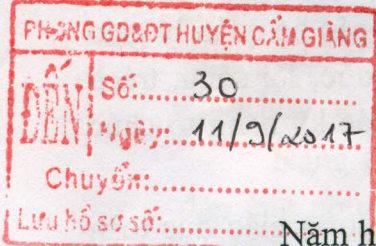 PHÒNG GD&ĐT HUYỆN CẨM GIÀNG
ĐẾN
Số:.....30.....
Ngày: 11/9/2017
Chuyển:.....
Lưu hồ sơ số:.....
Năm h